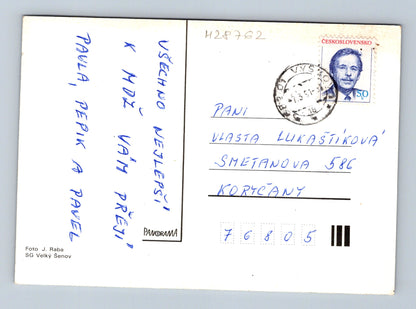 H28762
VŠECHNO NEJLEPŠÍ
K MDŽ VÁM PŘEJÍ
PAVLA, PEPÍK A PAVEL
PANORAMA
Foto J. Raba
SG Velký Šenov
ČESKOSLOVENSKO
50
682 01 VYŠKOV 1
PANÍ
VLASTA LUKAŠTÍKOVÁ
SMETANOVA 586
KORYČANY
76805